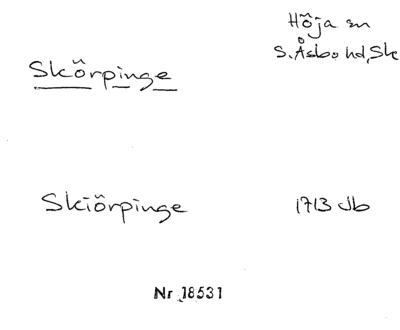 Höja sn
S. Åsbo hd, Sk
Skörpinge
Skiörpinge 1713 Jb
Nr 18531